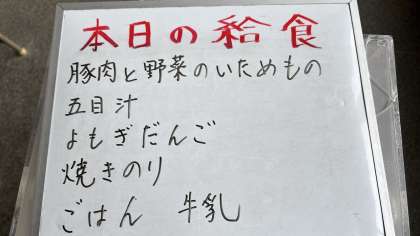 本日の給食
豚肉と野菜のいためもの
五目汁
よもぎだんご
焼きのり
ごはん 牛乳